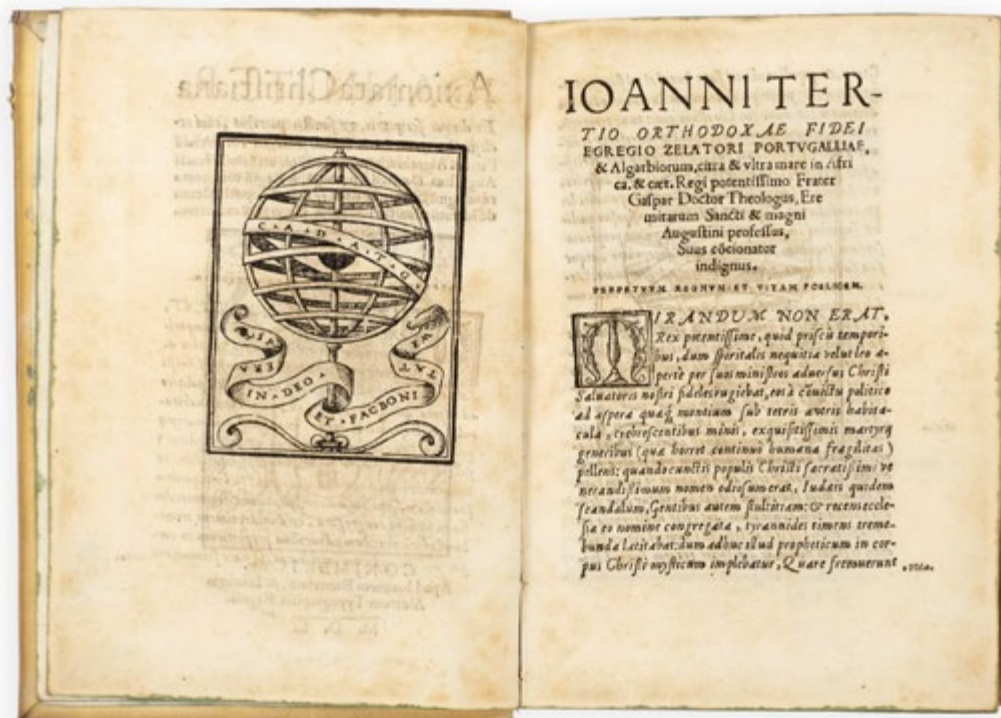 C · A · D · A · T · G ·
ERA
IN · DEO ·
ET · FACBONI
TAT
IOANNI TER-
TIO ORTHODOXAE FIDEI
EGREGIO ZELATORI PORTVGALLIAE,
& Algarbiorum, citra & vltra mare in Afri
ca, & cæt. Regi potentißimo Frater
Gaſpar Doctor Theologus, Ere
mitarum Sancti & magni
Auguſtini profeſſus,
Suus cōcionator
indignus.
PERPETVVM REGNVM ET VITAM FOELICEM.
MIRANDUM NON ERAT,
Rex potentißime, quid priſcis tempori-
bus, dum ſpiritalis nequitia velut leo a-
pertè per ſuos miniſtros aduerſus Chriſti
Saluatoris noſtri fideles rugiebat, eos à cōuictu politico
ad aſpera quæq; montium ſub tetris antris habita-
cula, crebreſcentibus minis, exquiſitißimis martyrij
generibus (quæ horret continuò humana fragilitas)
pellens: quando cunctis populis Chriſti ſacratißimi ve
nerandißimum nomen odioſum erat, Iudæis quidem
ſcandalum, Gentibus autem ſtultitiam: & recens eccle-
ſia eo nomine congregata, tyrannides timens treme-
bunda latitabat: dum adhuc illud propheticum in cor-
pus Chriſti myſticum implebatur, Quare fremuerunt